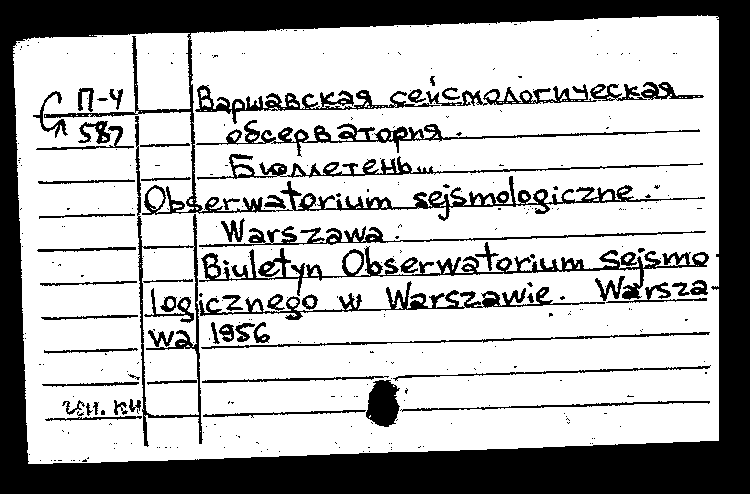 П-4 Варшавская сейсмологическая
587 обсерватория.
Бюллетень...
Obserwatorium sejsmologiczne.
Warszawa.
Biuletyn Obserwatorium sejsmo-
logicznego w Warszawie. Warsza-
wa 1956